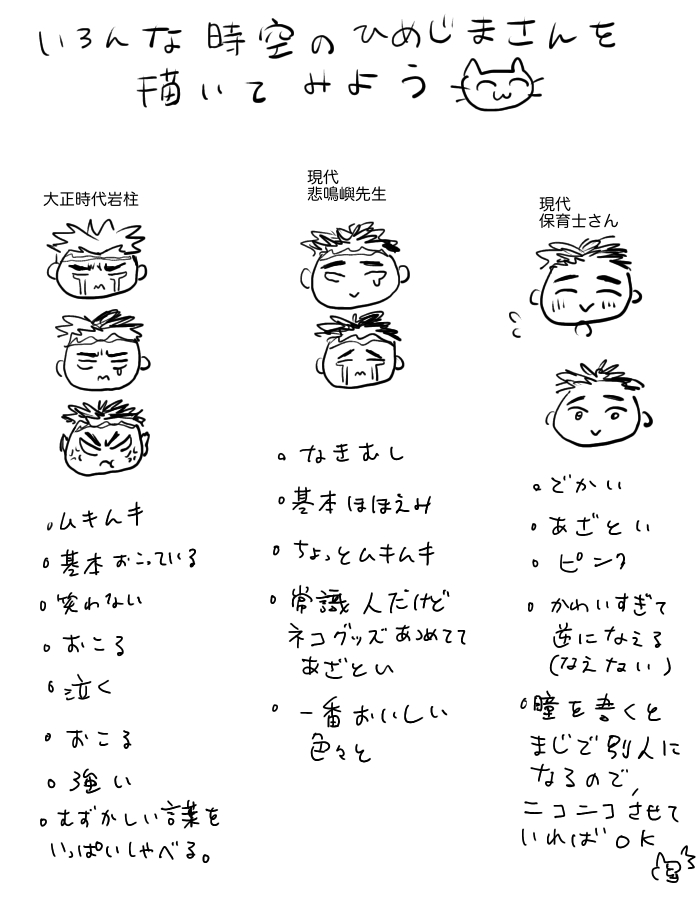 いろんな時空のひめじまさんを
描いてみよう
大正時代岩柱
。ムキムキ
。基本おこっている
。笑わない
。おこる
。泣く
。おこる
。強い
。むずかしい言葉を
いっぱいしゃべる。
現代
悲鳴嶼先生
。なきむし
。基本ほほえみ
。ちょっとムキムキ
。常識人だけど
ネコグッズあつめてて
あざとい
。一番おいしい
色々と
現代
保育士さん
。でかい
。あざとい
。ピンク
。かわいすぎて
逆になえる
(なえない)
。瞳を書くと
まじで別人に
なるので、
ニコニコさせて
いればOK